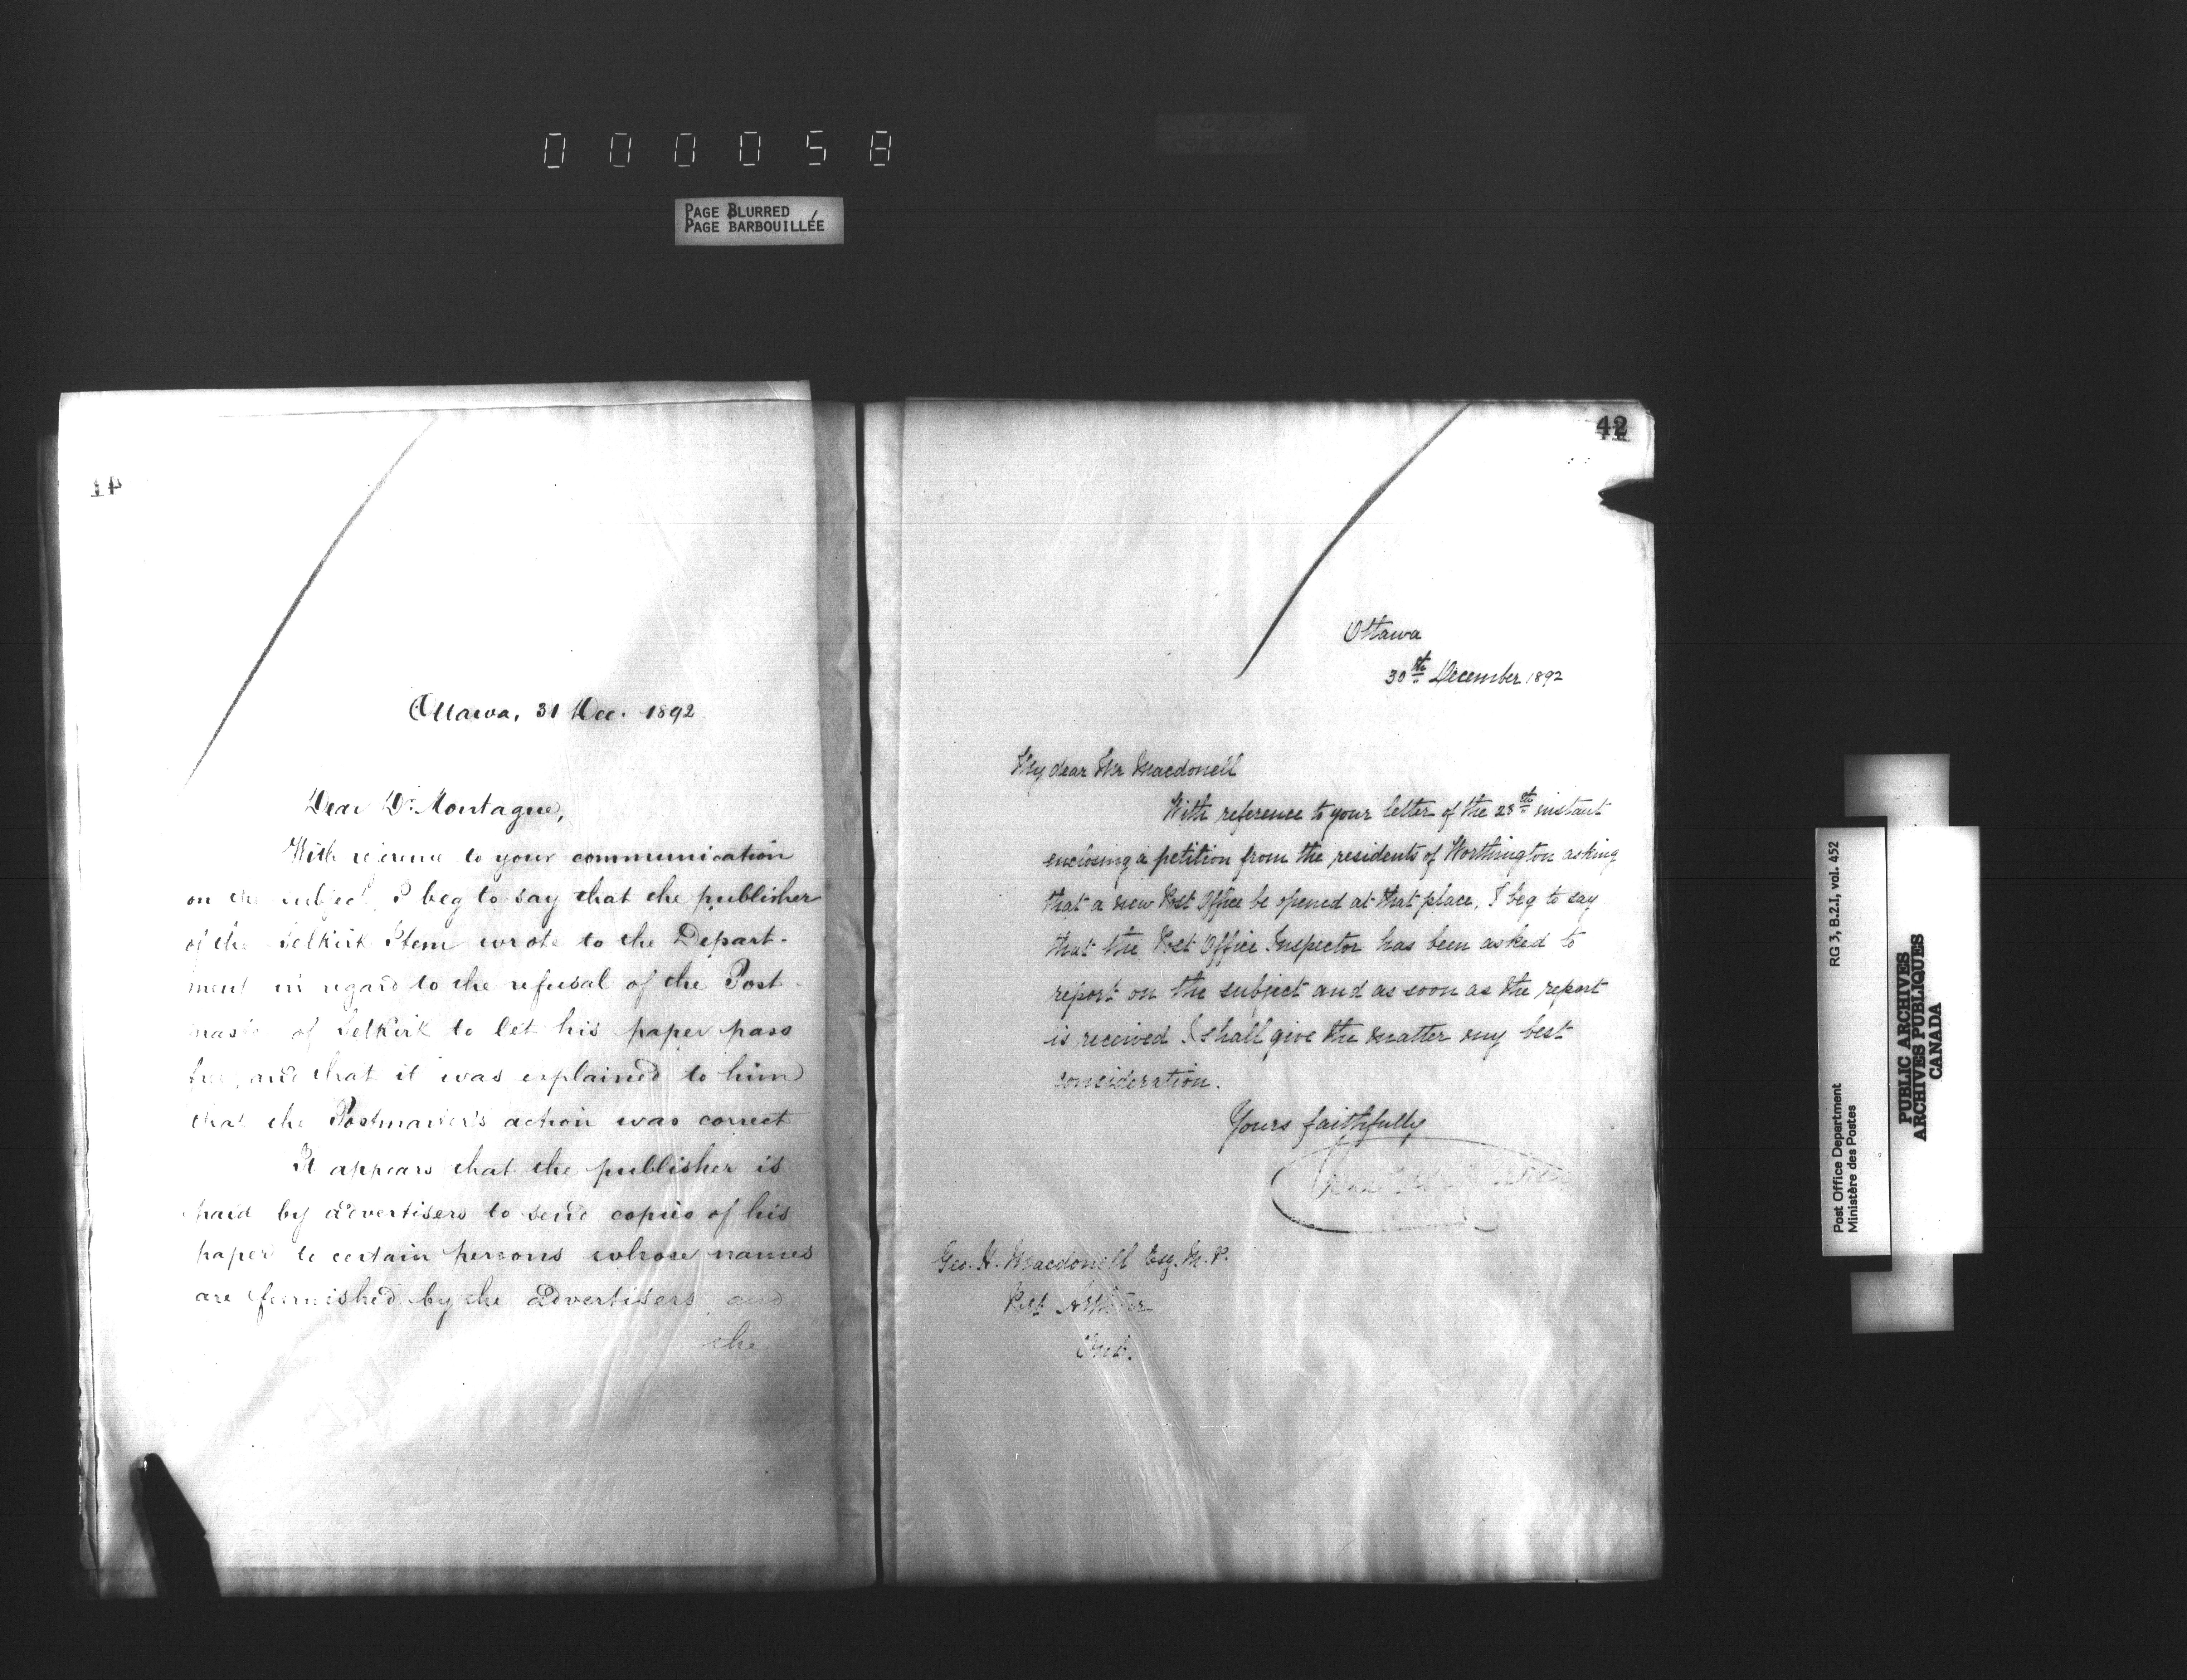 000058
PAGE BLURRED
PAGE BARBOUILLÉE
41
Ottawa, 31 Dec. 1892
Dear Dr. Montague,
With reference to your communication
on the subject, I beg to say that the publisher
of the Selkirk Item wrote to the Depart-
ment in regard to the refusal of the Post-
master of Selkirk to let his paper pass
free, and that it was explained to him
that the Postmaster's action was correct
It appears that the publisher is
paid by advertisers to send copies of his
paper to certain persons whose names
are furnished by the advertisers and
the
42
Ottawa
30th December 1892
My dear Mr Macdonell
With reference to your letter of the 28th instant
enclosing a petition from the residents of Worthington asking
that a new Post Office be opened at that place, I beg to say
that the Post Office Inspector has been asked to
report on the subject and as soon as the report
is received I shall give the matter my best
consideration.
Yours faithfully
Geo. H. Macdonell Esq. M.P.
Port Arthur
Ont.
Post Office Department
Ministère des Postes
RG 3, B.2.I, vol. 452
PUBLIC ARCHIVES
ARCHIVES PUBLIQUES
CANADA